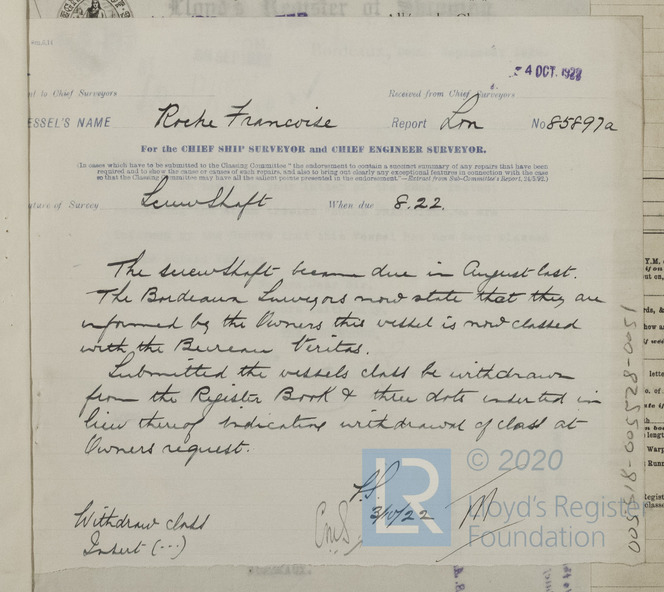 Lloyd's Register of Shipping.
4 OCT. 1922
nt to Chief Surveyors
Received from Chief Surveyors
ESSEL'S NAME Roche Francoise Report Lon No 85897a
For the CHIEF SHIP SURVEYOR and CHIEF ENGINEER SURVEYOR.
(In cases which have to be submitted to the Classing Committee "the endorsement to contain a succinct summary of any repairs that have been
required and to show the cause or causes of such repairs, and also to bring out clearly any exceptional features in connection with the case
so that the Classing Committee may have all the salient points presented in the endorsement."—Extract from Sub-Committee's Report,
ature of Survey Screw Shaft When due 8.22.
The screwshaft became due in August last.
The Bordeaux Surveyors now state that they are
informed by the Owners this vessel is now classed
with the Bureau Veritas.
Submitted the vessels class be withdrawn
from the Register Book & three dots inserted in
lieu thereof indicating withdrawal of class at
Owners request.
3/10/22
Withdraw class
Insert (...)
© 2020
LR
Lloyd's Register
Foundation
003418-005528-0051